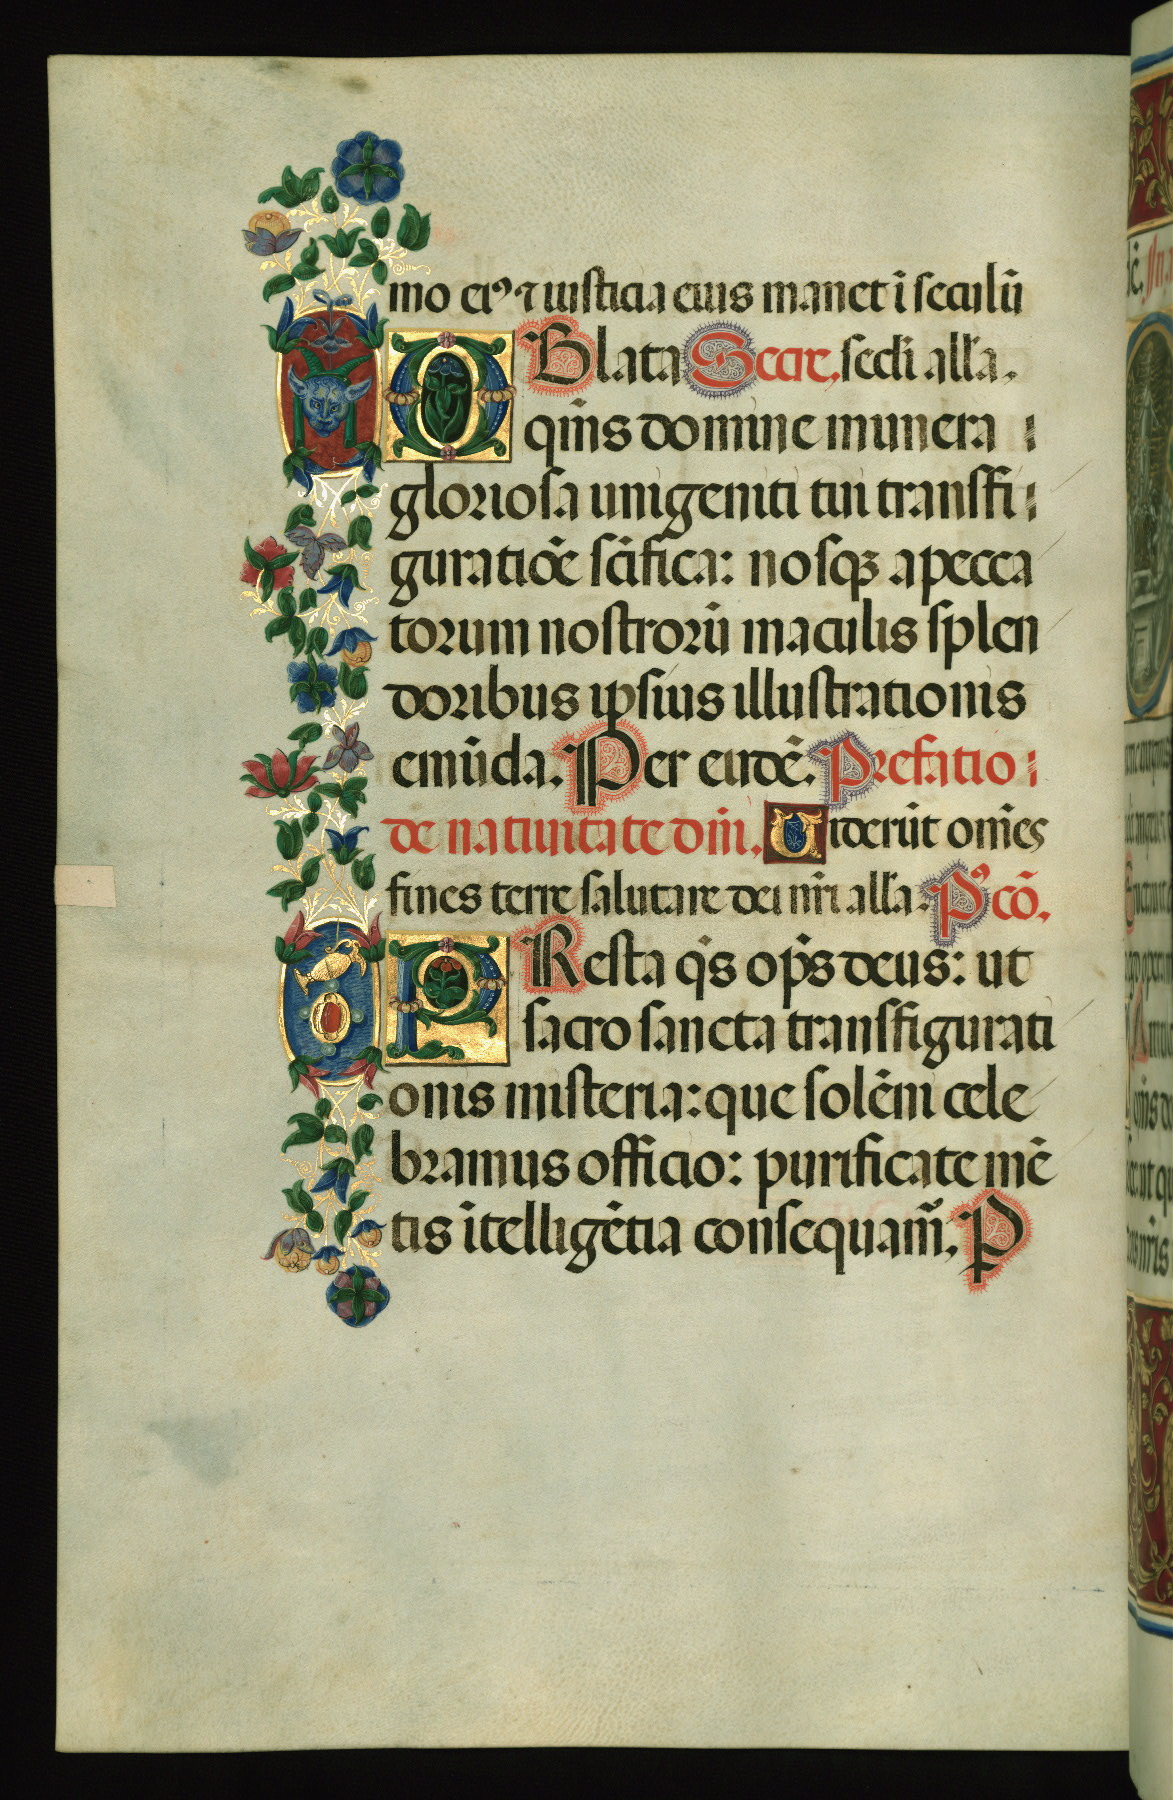 mo eiꝰ ⁊ iusticia eius manet ī seculū
OBlata Secre, secl̄i all'a.
qm̄s domine munera
gloriosa unigeniti tui transfi
guratiōe scīfica: nosqꝫ a pecca
torum nostrorū maculis splen
doribus ipsius illustrationis
emūda. Per eūdē. Prefatio
de natiuitate dn̄i. Uiderūt om̄es
fines terre salutare dei nr̄i all'a. Pꝰ cō.
PResta q̄s op̄s deus: ut
sacro sancta transfigurati
onis misteria: que solēni cele
bramus officio: purificate mē
tis ītelligētia consequam̄. P